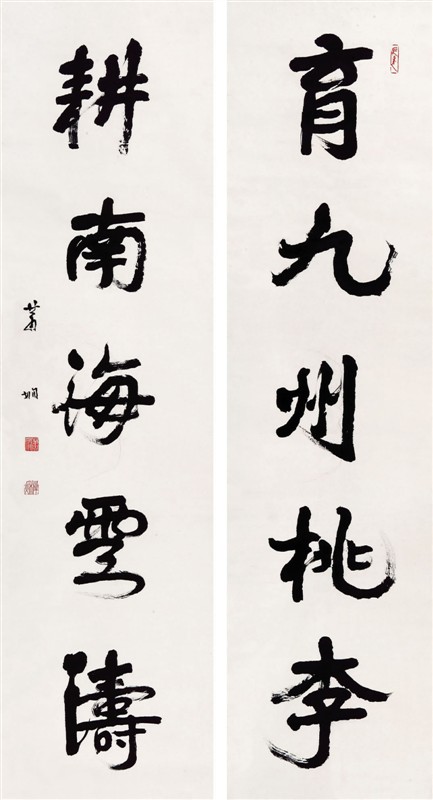 育九州桃李
耕南海雲濤
蕭嫻